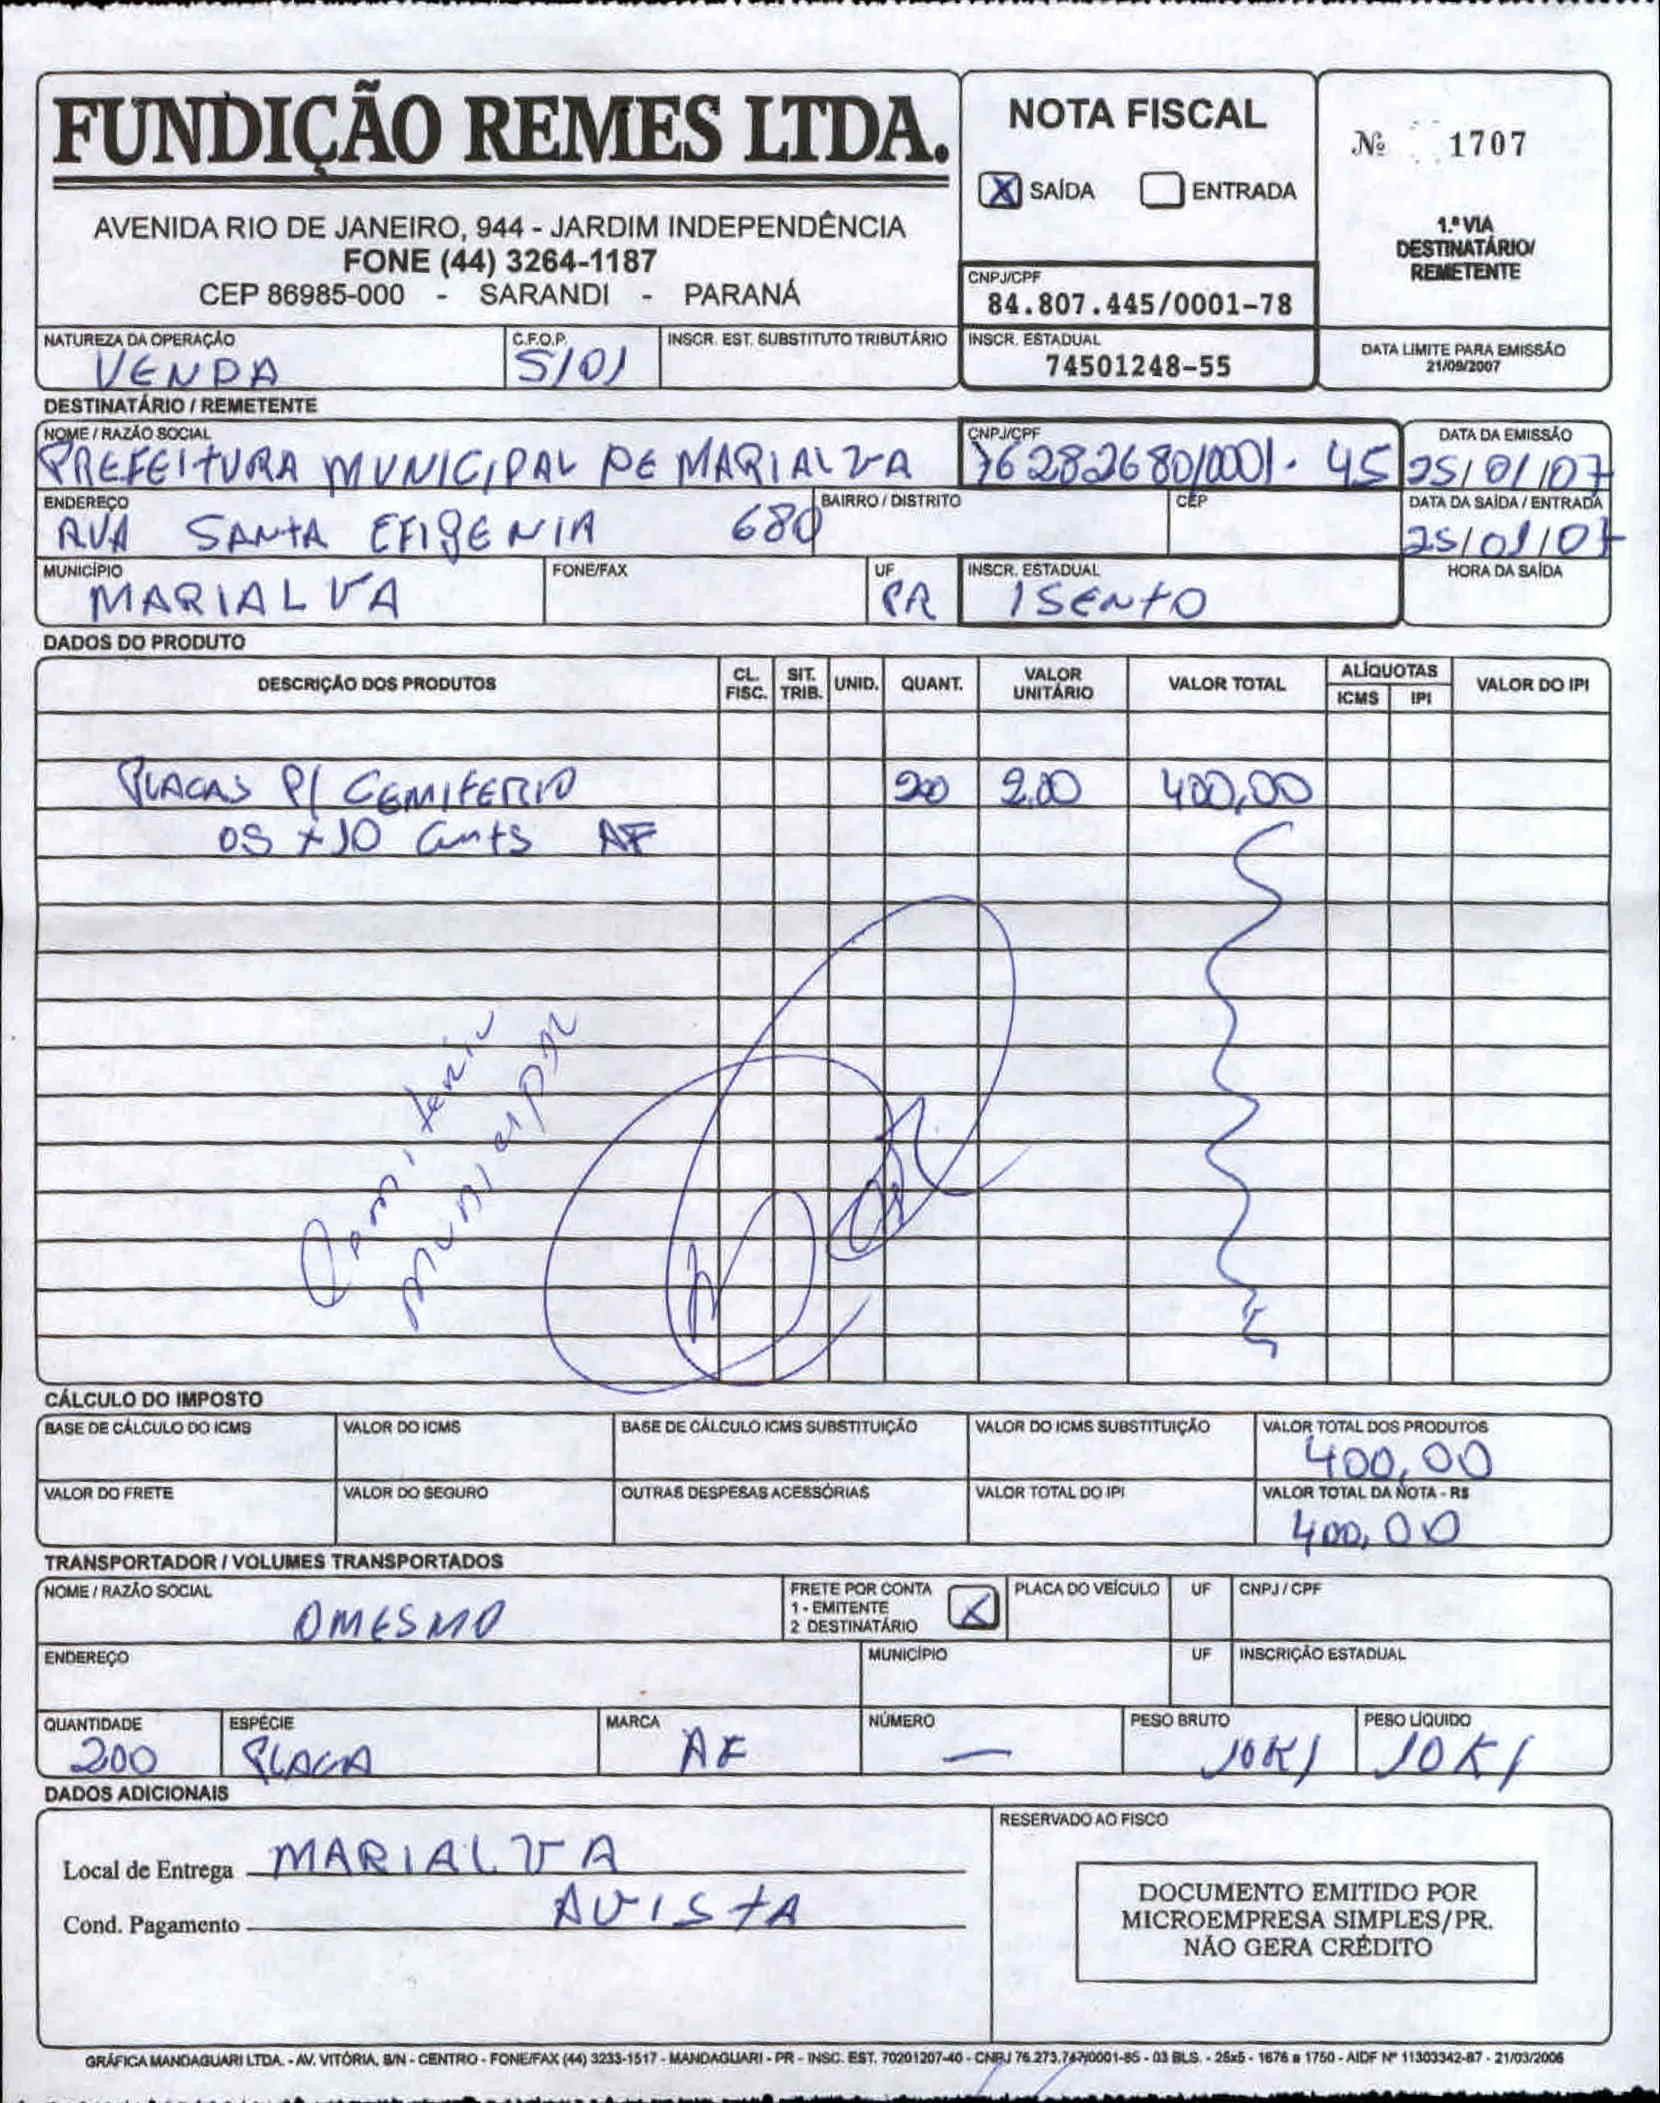 FUNDIÇÃO REMES LTDA.
AVENIDA RIO DE JANEIRO, 944 - JARDIM INDEPENDÊNCIA
FONE (44) 3264-1187
CEP 86985-000 - SARANDI - PARANÁ
NOTA FISCAL
X SAÍDA ENTRADA
Nº 1707
1.ª VIA
DESTINATÁRIO/
REMETENTE
CNPJ/CPF
84.807.445/0001-78
NATUREZA DA OPERAÇÃO
VENDA
C.F.O.P.
5101
INSCR. EST. SUBSTITUTO TRIBUTÁRIO
INSCR. ESTADUAL
74501248-55
DATA LIMITE PARA EMISSÃO
21/09/2007
DESTINATÁRIO / REMETENTE
NOME / RAZÃO SOCIAL
PREFEITURA MUNICIPAL DE MARIALVA
CNPJ/CPF
76282680/0001-45
DATA DA EMISSÃO
25/01/07
ENDEREÇO
AVA SANTA EFIGENIA 680
BAIRRO / DISTRITO
CEP
DATA DA SAÍDA / ENTRADA
25/01/07
MUNICÍPIO
MARIALVA
FONE/FAX
UF
PR
INSCR. ESTADUAL
ISENTO
HORA DA SAÍDA
DADOS DO PRODUTO
DESCRIÇÃO DOS PRODUTOS CL. FISC. SIT. TRIB. UNID. QUANT. VALOR UNITÁRIO VALOR TOTAL ALÍQUOTAS ICMS IPI VALOR DO IPI
PLACAS P/ CEMITERIO 200 2.00 400,00
05 x 10 Cmts AF
Cemiterio
municipal
CÁLCULO DO IMPOSTO
BASE DE CÁLCULO DO ICMS VALOR DO ICMS BASE DE CÁLCULO ICMS SUBSTITUIÇÃO VALOR DO ICMS SUBSTITUIÇÃO VALOR TOTAL DOS PRODUTOS
400,00
VALOR DO FRETE VALOR DO SEGURO OUTRAS DESPESAS ACESSÓRIAS VALOR TOTAL DO IPI VALOR TOTAL DA NOTA - R$
400,00
TRANSPORTADOR / VOLUMES TRANSPORTADOS
NOME / RAZÃO SOCIAL
OMESMO
FRETE POR CONTA
1 - EMITENTE
2 DESTINATÁRIO
X
PLACA DO VEÍCULO UF CNPJ / CPF
ENDEREÇO MUNICÍPIO UF INSCRIÇÃO ESTADUAL
QUANTIDADE ESPÉCIE MARCA NÚMERO PESO BRUTO PESO LÍQUIDO
200 PLACA AF — 10K/ 10K/
DADOS ADICIONAIS
Local de Entrega MARIALVA
Cond. Pagamento AVISTA
RESERVADO AO FISCO
DOCUMENTO EMITIDO POR
MICROEMPRESA SIMPLES/PR.
NÃO GERA CRÉDITO
GRÁFICA MANDAGUARI LTDA. - AV. VITÓRIA, S/N - CENTRO - FONE/FAX (44) 3233-1517 - MANDAGUARI - PR - INSC. EST. 70201207-40 - CNPJ 76.273.747/0001-85 - 03 BLS. - 25x5 - 1676 a 1750 - AIDF Nº 11303342-87 - 21/03/2006